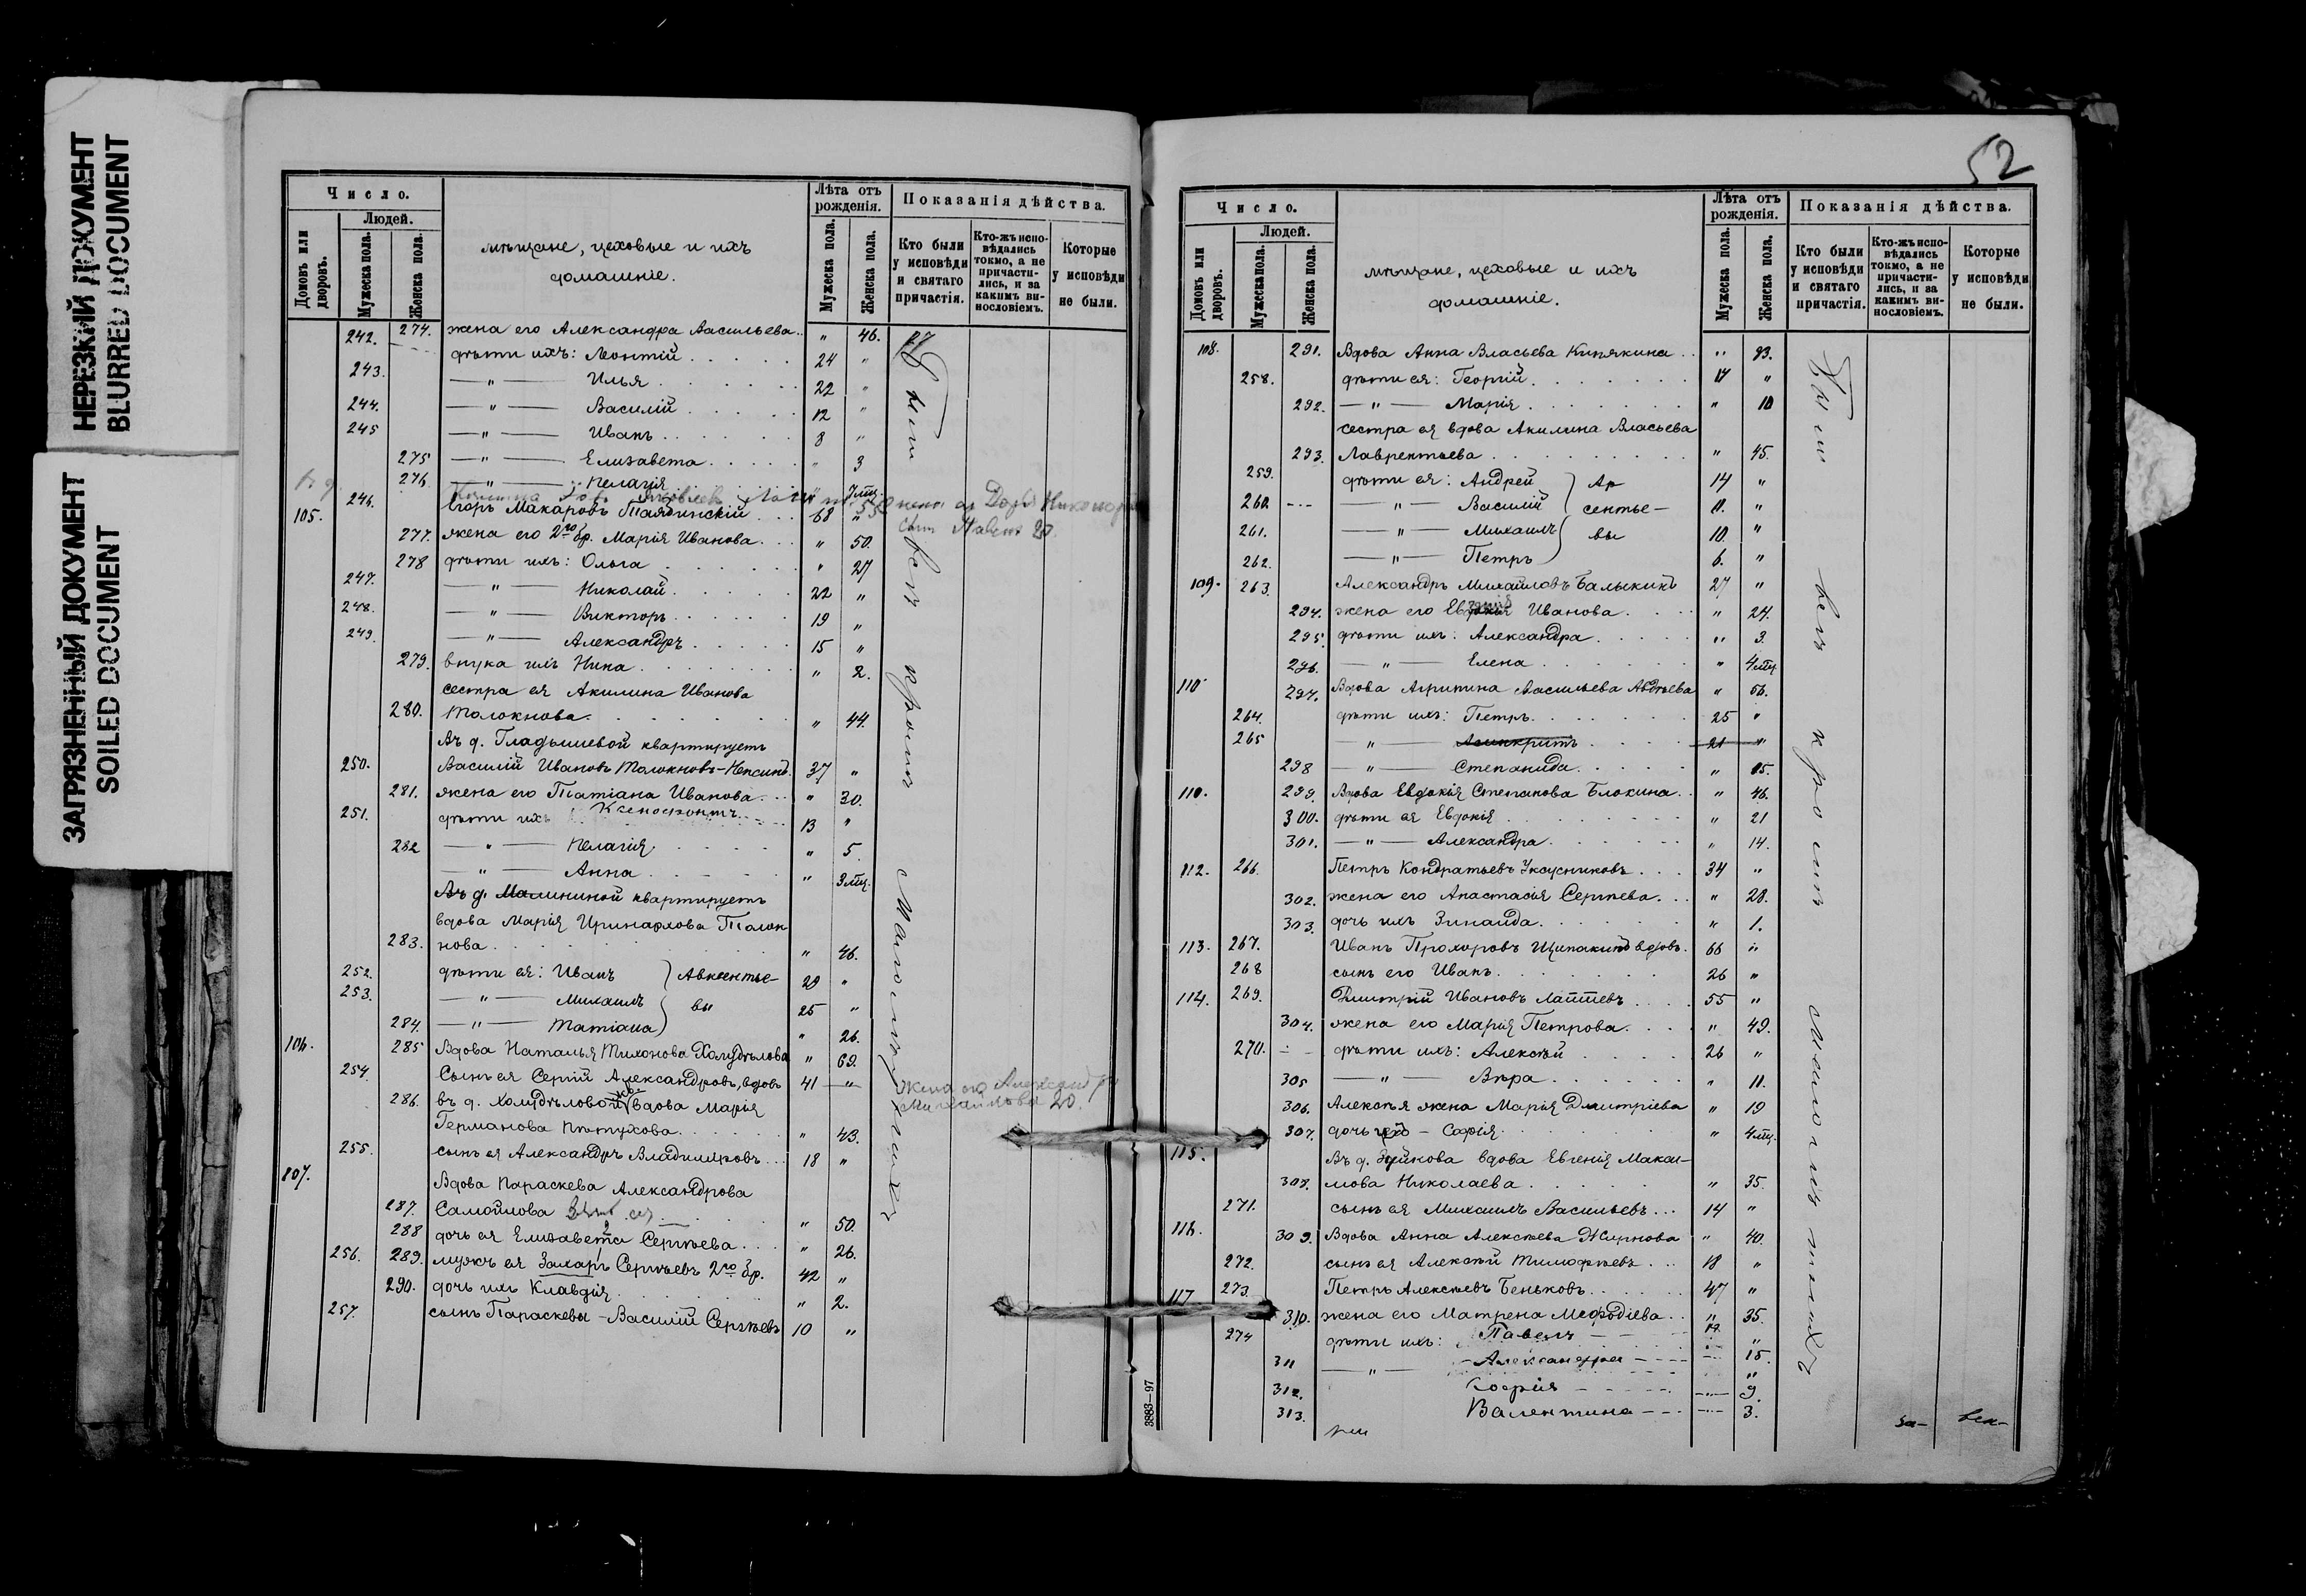 НЕРЕЗКИЙ ДОКУМЕНТ
BLURRED DOCUMENT
ЗАГРЯЗНЕННЫЙ ДОКУМЕНТ
SOILED DOCUMENT
Число.
Людей.
Домовъ или дворовъ.
Мужеска пола.
Женска пола.
мѣщане, цеховые и ихъ
домашніе.
Лѣта отъ рожденія.
Мужеска пола.
Женска пола.
Показанія дѣйства.
Кто были у исповѣди и святаго причастія.
Кто-жъ исповѣдались токмо, а не причастились, и за какимъ винословіемъ.
Которые у исповѣди не были.
274. жена его Александра Васильева.. " 46.
242. дѣти ихъ: Леонтій . . . . . 24 "
243. —"— Илья . . . . . . 22 "
244. —"— Василій . . . . . 12 "
245 —"— Иванъ . . . . . . 8 "
275 —"— Елизавета . . . . . " 3
276. —"— Пелагія " 7 мц.
105. 246. Егоръ Макаровъ . . . 68 "
277. жена его 2го бр. Марія Иванова. . . " 50.
278 дѣти ихъ: Ольга . . . . . . " 27
247. —"— Николай . . . . . 22 "
248. —"— Викторъ . . . . . 19 "
249. —"— Александръ . . . . . 15 "
279. внука ихъ Нина . . . . . . . . " 2.
сестра ея Акилина Иванова
280. Толокнова. . . . . . . . " 44.
Въ д. Гладышевой квартируетъ
250. Василій Ивановъ Толокновъ 37 "
281. жена его Татіана Иванова. . . " 30.
251. дѣти ихъ Ксенофонтъ 13 "
282 —"— Пелагія . . . . . " 5.
—"— Анна . . . . . . " 3 мц.
Въ д. Малининой квартируетъ
вдова Марія Иринархова Толок
283. нова . . . . . . . . " 46.
252. дѣти ея: Иванъ } Авксентье- 29 "
253. —"— Михаилъ } вы 25 "
284. —"— Татіана } " 26.
106. 285 Вдова Наталья Тихонова Холудѣлова " 69.
254. Сынъ ея Сергій Александровъ, вдовъ 41 —"—
жена его Александра
Михайлова 20.
286. въ д. Холудѣловой вдова Марія
Германова Пѣтухова . . . . . . " 43.
255. сынъ ея Александръ Владиміровъ . . . 18 "
107. Вдова Параскева Александрова
287. Самойлова " 50.
288 дочь ея Елизавета Сергѣева . . . " 26.
256. 289. мужъ ея Захаръ Сергѣевъ 2го бр. 42 "
290. дочь ихъ Клавдія . . . . . . " 2.
257. сынъ Параскевы - Василій Сергѣевъ 10 "
Были всѣ кромѣ малолѣтнихъ
52
Число.
Людей.
Домовъ или дворовъ.
Мужеска пола.
Женска пола.
мѣщане, цеховые и ихъ
домашніе.
Лѣта отъ рожденія.
Мужеска пола.
Женска пола.
Показанія дѣйства.
Кто были у исповѣди и святаго причастія.
Кто-жъ исповѣдались токмо, а не причастились, и за какимъ винословіемъ.
Которые у исповѣди не были.
108. 291. Вдова Анна Власьева Кипякина . . "
258. дѣти ея: Георгій . . . . . . . 17 "
292. —"— Марія . . . . . . . " 10
сестра ея вдова Акилина Власьева
293. Лаврентьева . . . . . . . . . " 45.
259. дѣти ея: Андрей } Ар 14 "
260. —"— Василій } сентье- "
261. —"— Михаилъ } вы 10. "
262. —"— Петръ } 6. "
109. 263. Александръ Михайловъ Балыкинъ 27 "
294. жена его Иванова . . . . " 24.
295. дѣти ихъ: Александра . . . . . " 3.
296. —"— Елена . . . . . . . " 4 мц
110 297. Вдова Агрипина Васильева Авдѣева " 56.
264. дѣти ихъ: Петръ . . . . . . . 25 "
265 —"— Асинкритъ . . . . 21 "
298 —"— Степанида . . . . . " 15.
110. 299. Вдова Евдокія Степанова Блокина . . " 46.
300. дѣти ея Евдокія . . . . . . . " 21
301. —"— Александра . . . . . . " 14.
112. 266. Петръ Кондратьевъ Уксусниковъ . . . 34 "
302. жена его Анастасія Сергѣева. . . " 28.
303. дочь ихъ Зинаида . . . . . . " 1.
113. 267. Иванъ Прохоровъ Щипакинъ вдовъ. 66 "
268 сынъ его Иванъ . . . . . . . 26 "
114. 269. Дмитрій Ивановъ Лаптевъ . . . . 55 "
304. жена его Марія Петрова . . . . " 49.
270. дѣти ихъ: Алексѣй . . . . 26 "
305 —"— Вѣра . . . . . . " 11.
306. Алексѣя жена Марія Дмитріева " 19
307. дочь - Софія . . . . . . . " 4 мц.
115. Въ д. Зуйкова вдова Евгенія Макси-
308. мова Николаева . . . . . " 35.
271. сынъ ея Михаилъ Васильевъ . . . 14 "
116. 309. Вдова Анна Алексѣева Жирнова " 40.
272. сынъ ея Алексѣй Тимофѣевъ . . . 18 "
117 273. Петръ Алексѣевъ Беньковъ . . . . . 47 "
310. жена его Матрена Меѳодіева . . " 35.
274 дѣти ихъ: Павелъ
311 —"— Александра 15.
312. Софія 9.
313. Валентина 3.
Были всѣ кромѣ малолѣтнихъ
3883—97